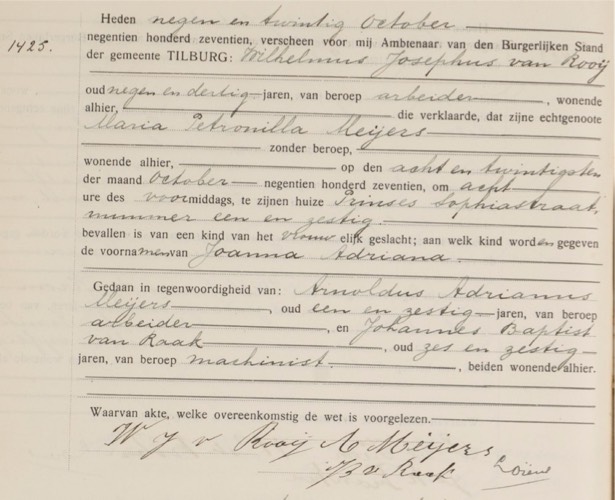 Heden negen en twintig October
1425.
negentien honderd zeventien, verscheen voor mij Ambtenaar van den Burgerlijken Stand
der gemeente TILBURG: Wilhelmus Josephus van Rooij
oud negen en dertig jaren, van beroep arbeider, wonende
alhier, die verklaarde, dat zijne echtgenoote
Maria Petronilla Meijers
zonder beroep,
wonende alhier, op den acht en twintigsten
der maand October negentien honderd zeventien, om acht
ure des voormiddags, te zijnen huize Prinses Sophiastraat
nummer een en zestig
bevallen is van een kind van het vrouwelijk geslacht; aan welk kind worden gegeven
de voornamen van Joanna Adriana.
Gedaan in tegenwoordigheid van: Arnoldus Adrianus
Meijers, oud een en zestig jaren, van beroep
arbeider, en Johannes Baptist
van Raak, oud zes en zestig
jaren, van beroep machinist., beiden wonende alhier.
Waarvan akte, welke overeenkomstig de wet is voorgelezen.
W J v Rooij A Meijers
JB v Raak